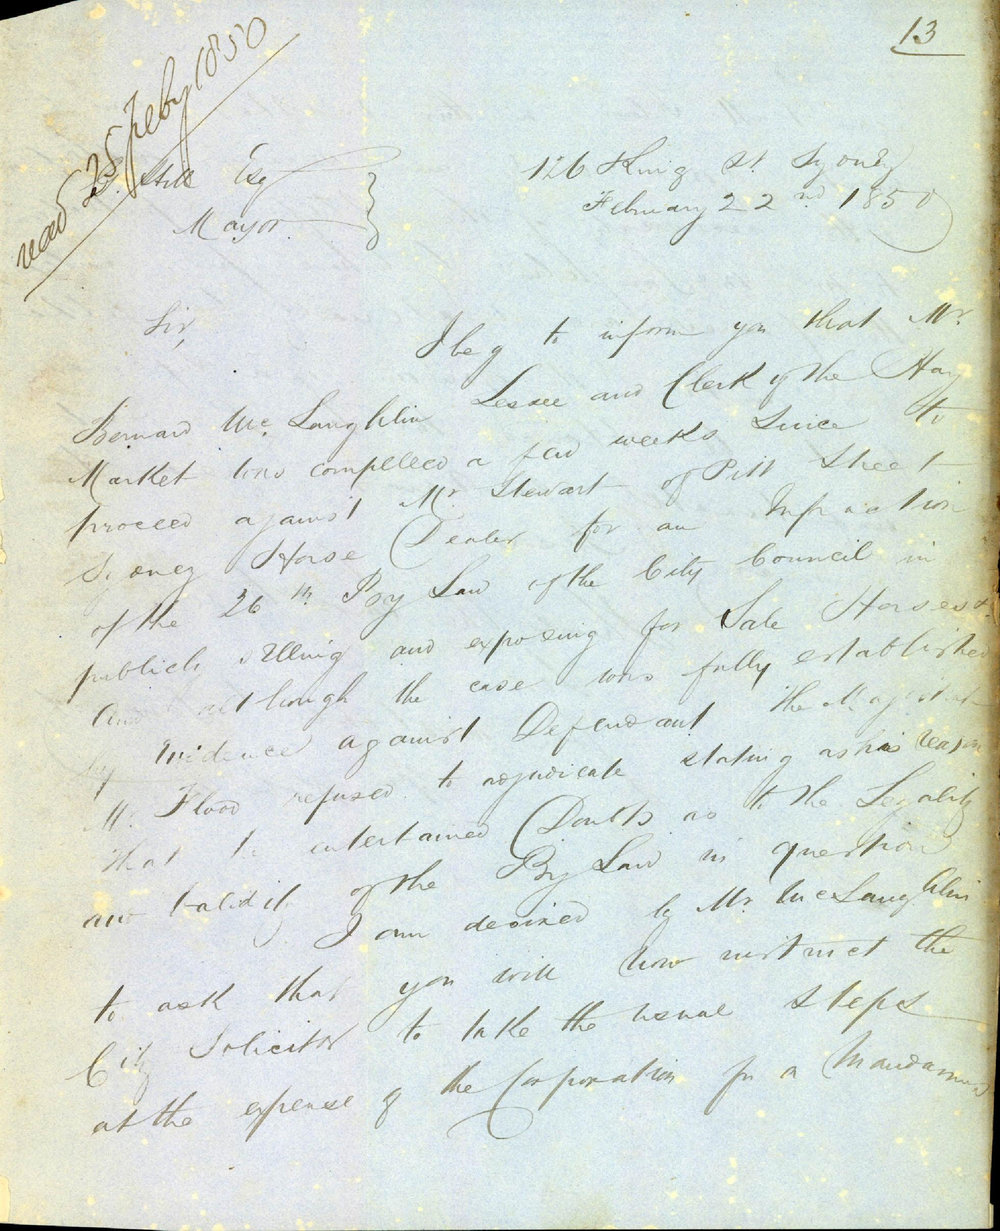 13
read 25 Feby 1850
Still Esq
Mayor
126 King St. Sydney
February 22nd 1850
Sir,
I beg to inform you that Mr.
Bernard McLaughlin Lessee and Clerk of the Hay
Market was compelled a few weeks since to
proceed against Mr. Stewart of Pitt Street
Sydney Horse Dealer for an Infraction
of the 26th Bye Law of the City Council in
publicly selling and exposing for Sale Horses &
and although the case was fully established
by Evidence against Defendant the Magistrate
Mr. Flood refused to adjudicate stating as his reason
that he entertained Doubts as to the Legality
and validity of the Bye Law in question
I am desired by Mr. McLaughlin
to ask that you will now instruct the
City Solicitor to take the usual steps
at the expense of the Corporation for a Mandamus